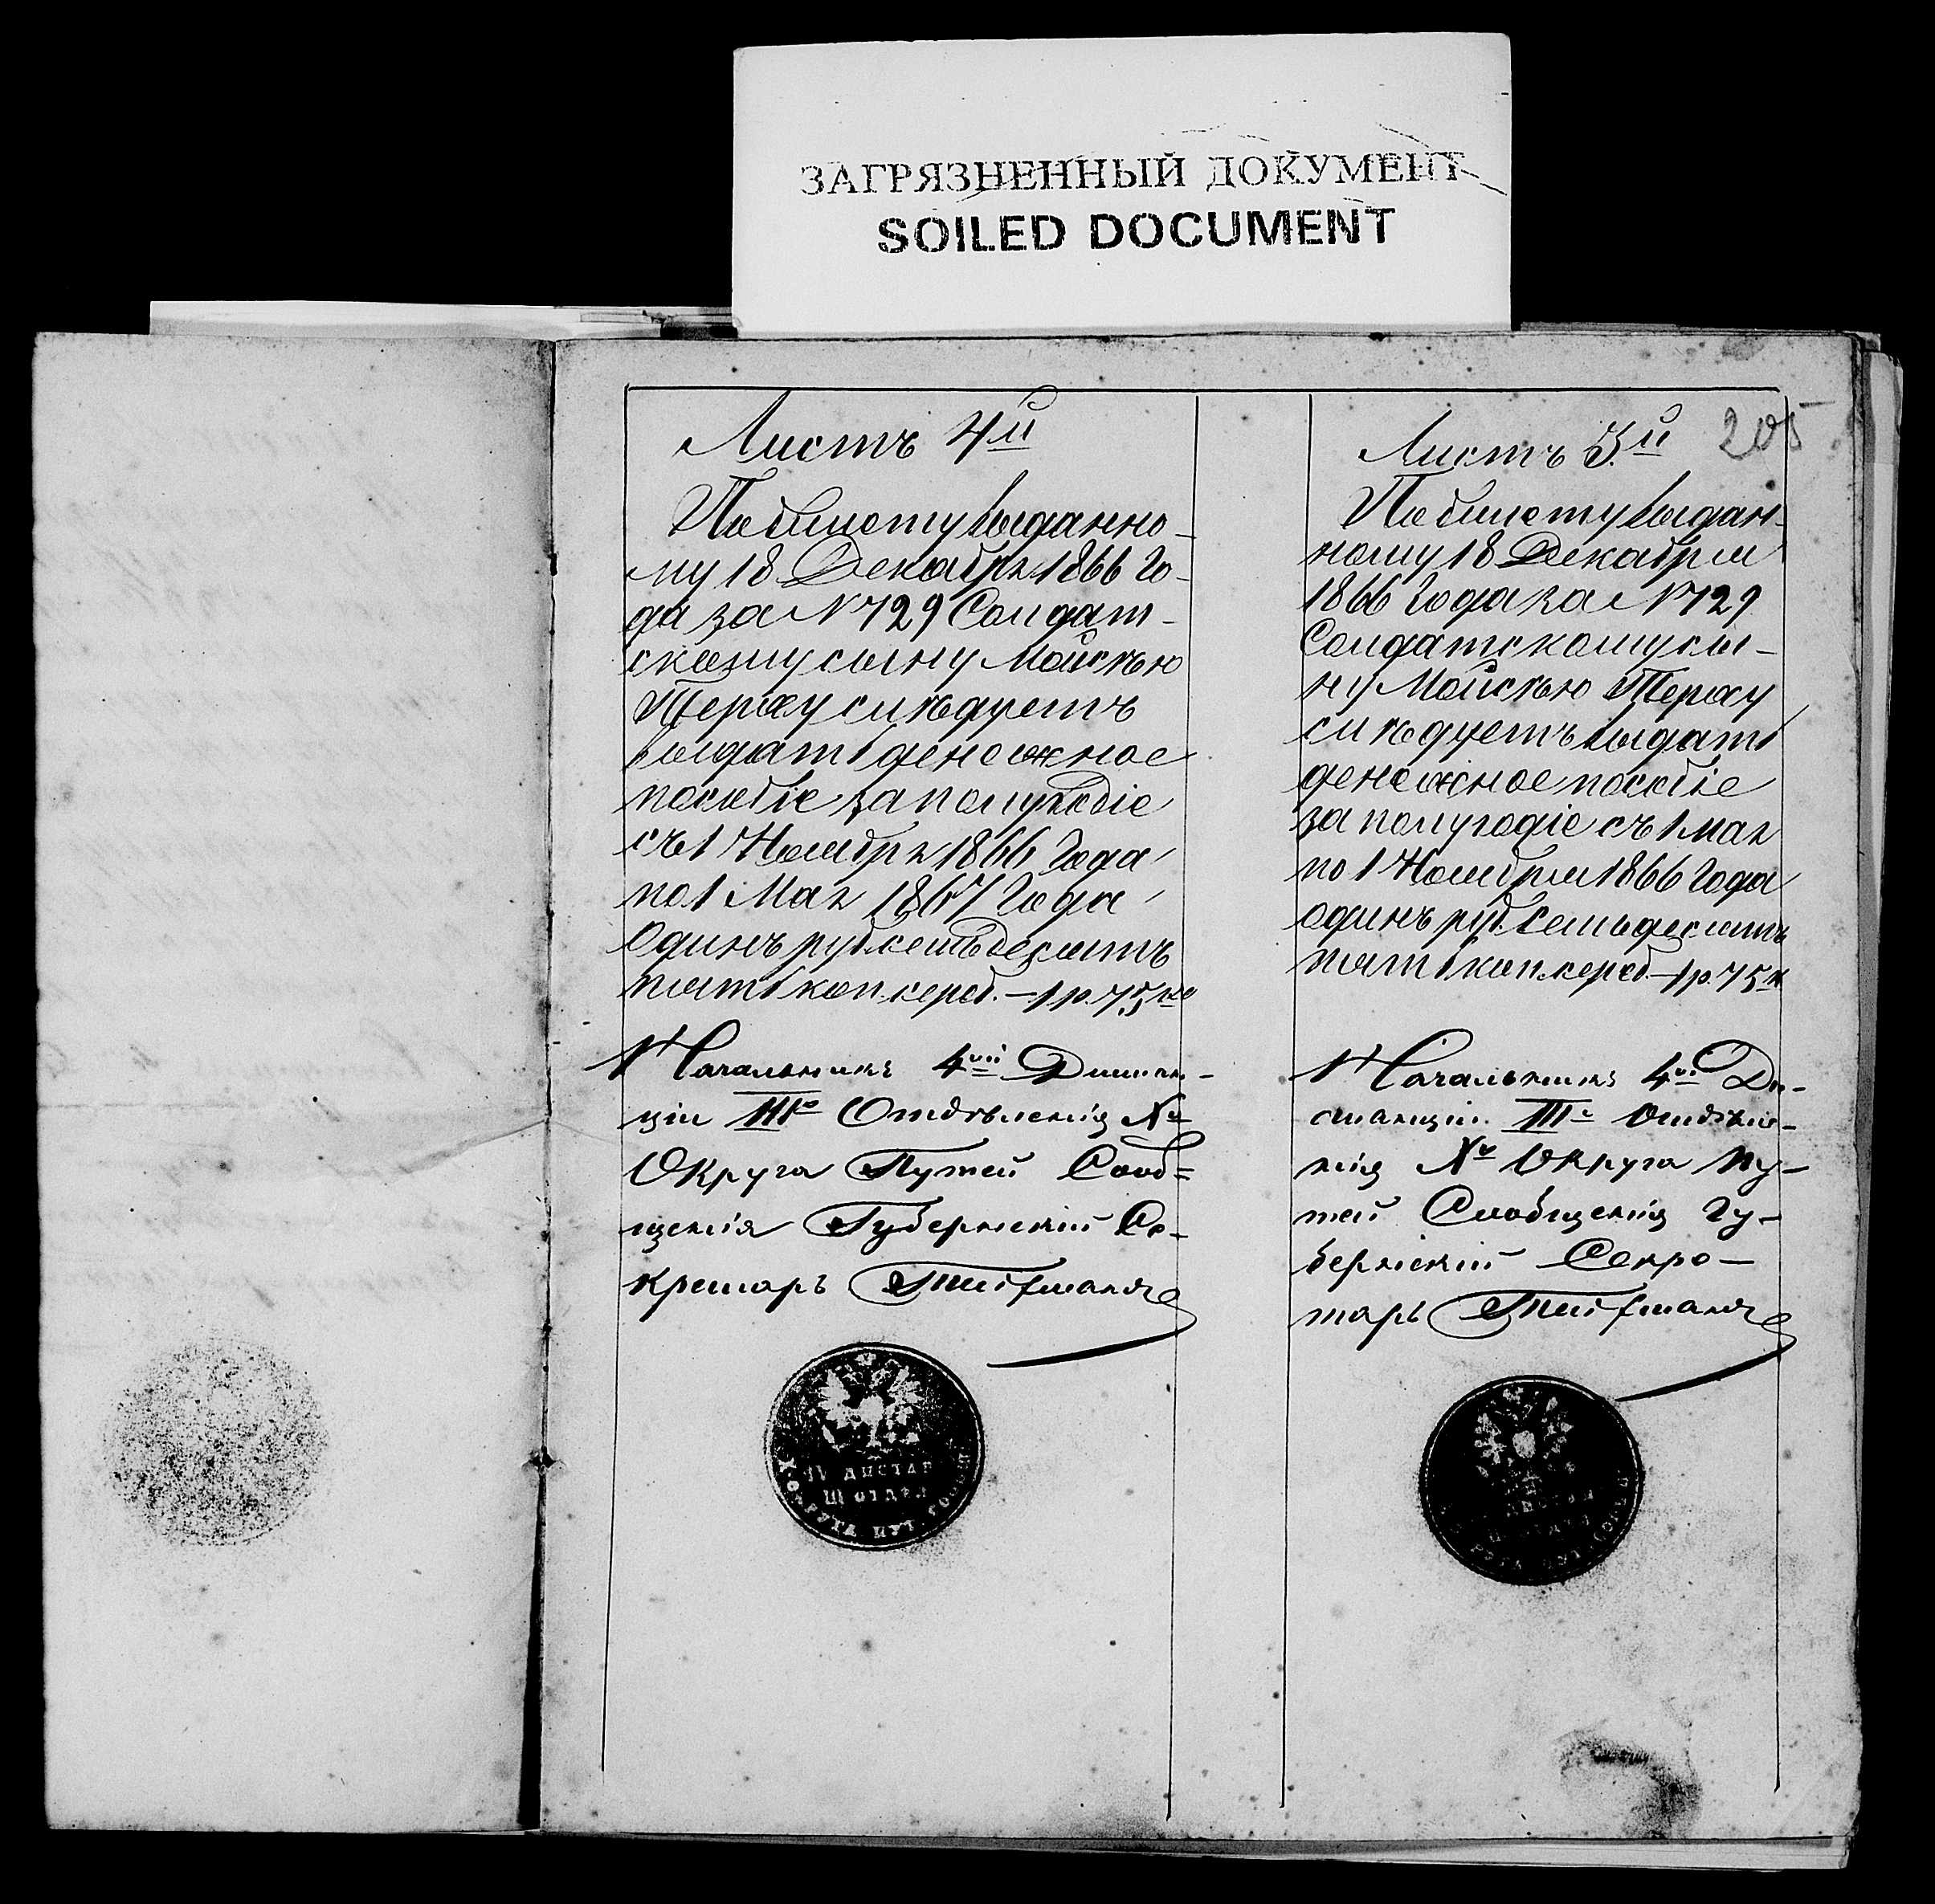 ЗАГРЯЗНЕННЫЙ ДОКУМЕНТ
SOILED DOCUMENT
Листъ 4й
По билету выданно-
му 18 Декабря 1866 го-
да за N 729 Солдат-
скому сыну Мойсѣю
Терху слѣдуетъ
выдать денежное
пособіе за полугодіе
съ 1 Ноября 1866 года
по 1 Мая 1867 года
Одинъ руб. семьдесятъ
пять коп. сереб. — 1 р. 75 ко
Начальникъ 4ой Дистан-
ціи IIIго Отдѣленія Xго
Округа Путей Сооб=
щенія Губернскій Се-
кретарь
IV ДИСТАН
III ОТДѢЛ
X ОКРУГА ПУТ. СООБЩ
205
Листъ 3.й
По билету выдан-
ному 18 Декабря
1866 года за N 729
Солдатскому сы-
ну Мойсѣю Терху
слѣдуетъ выдать
денежное пособіе
за полугодіе съ 1 мая
по 1 Ноября 1866 года
одинъ руб. семьдесятъ
пять коп. сереб. — 1 р. 75 к
Начальникъ 4ой Ди-
станціи IIIго Отдѣле-
нія Xго Округа Пу-
тей Сообщенія Гу-
бернскій Секре-
тарь